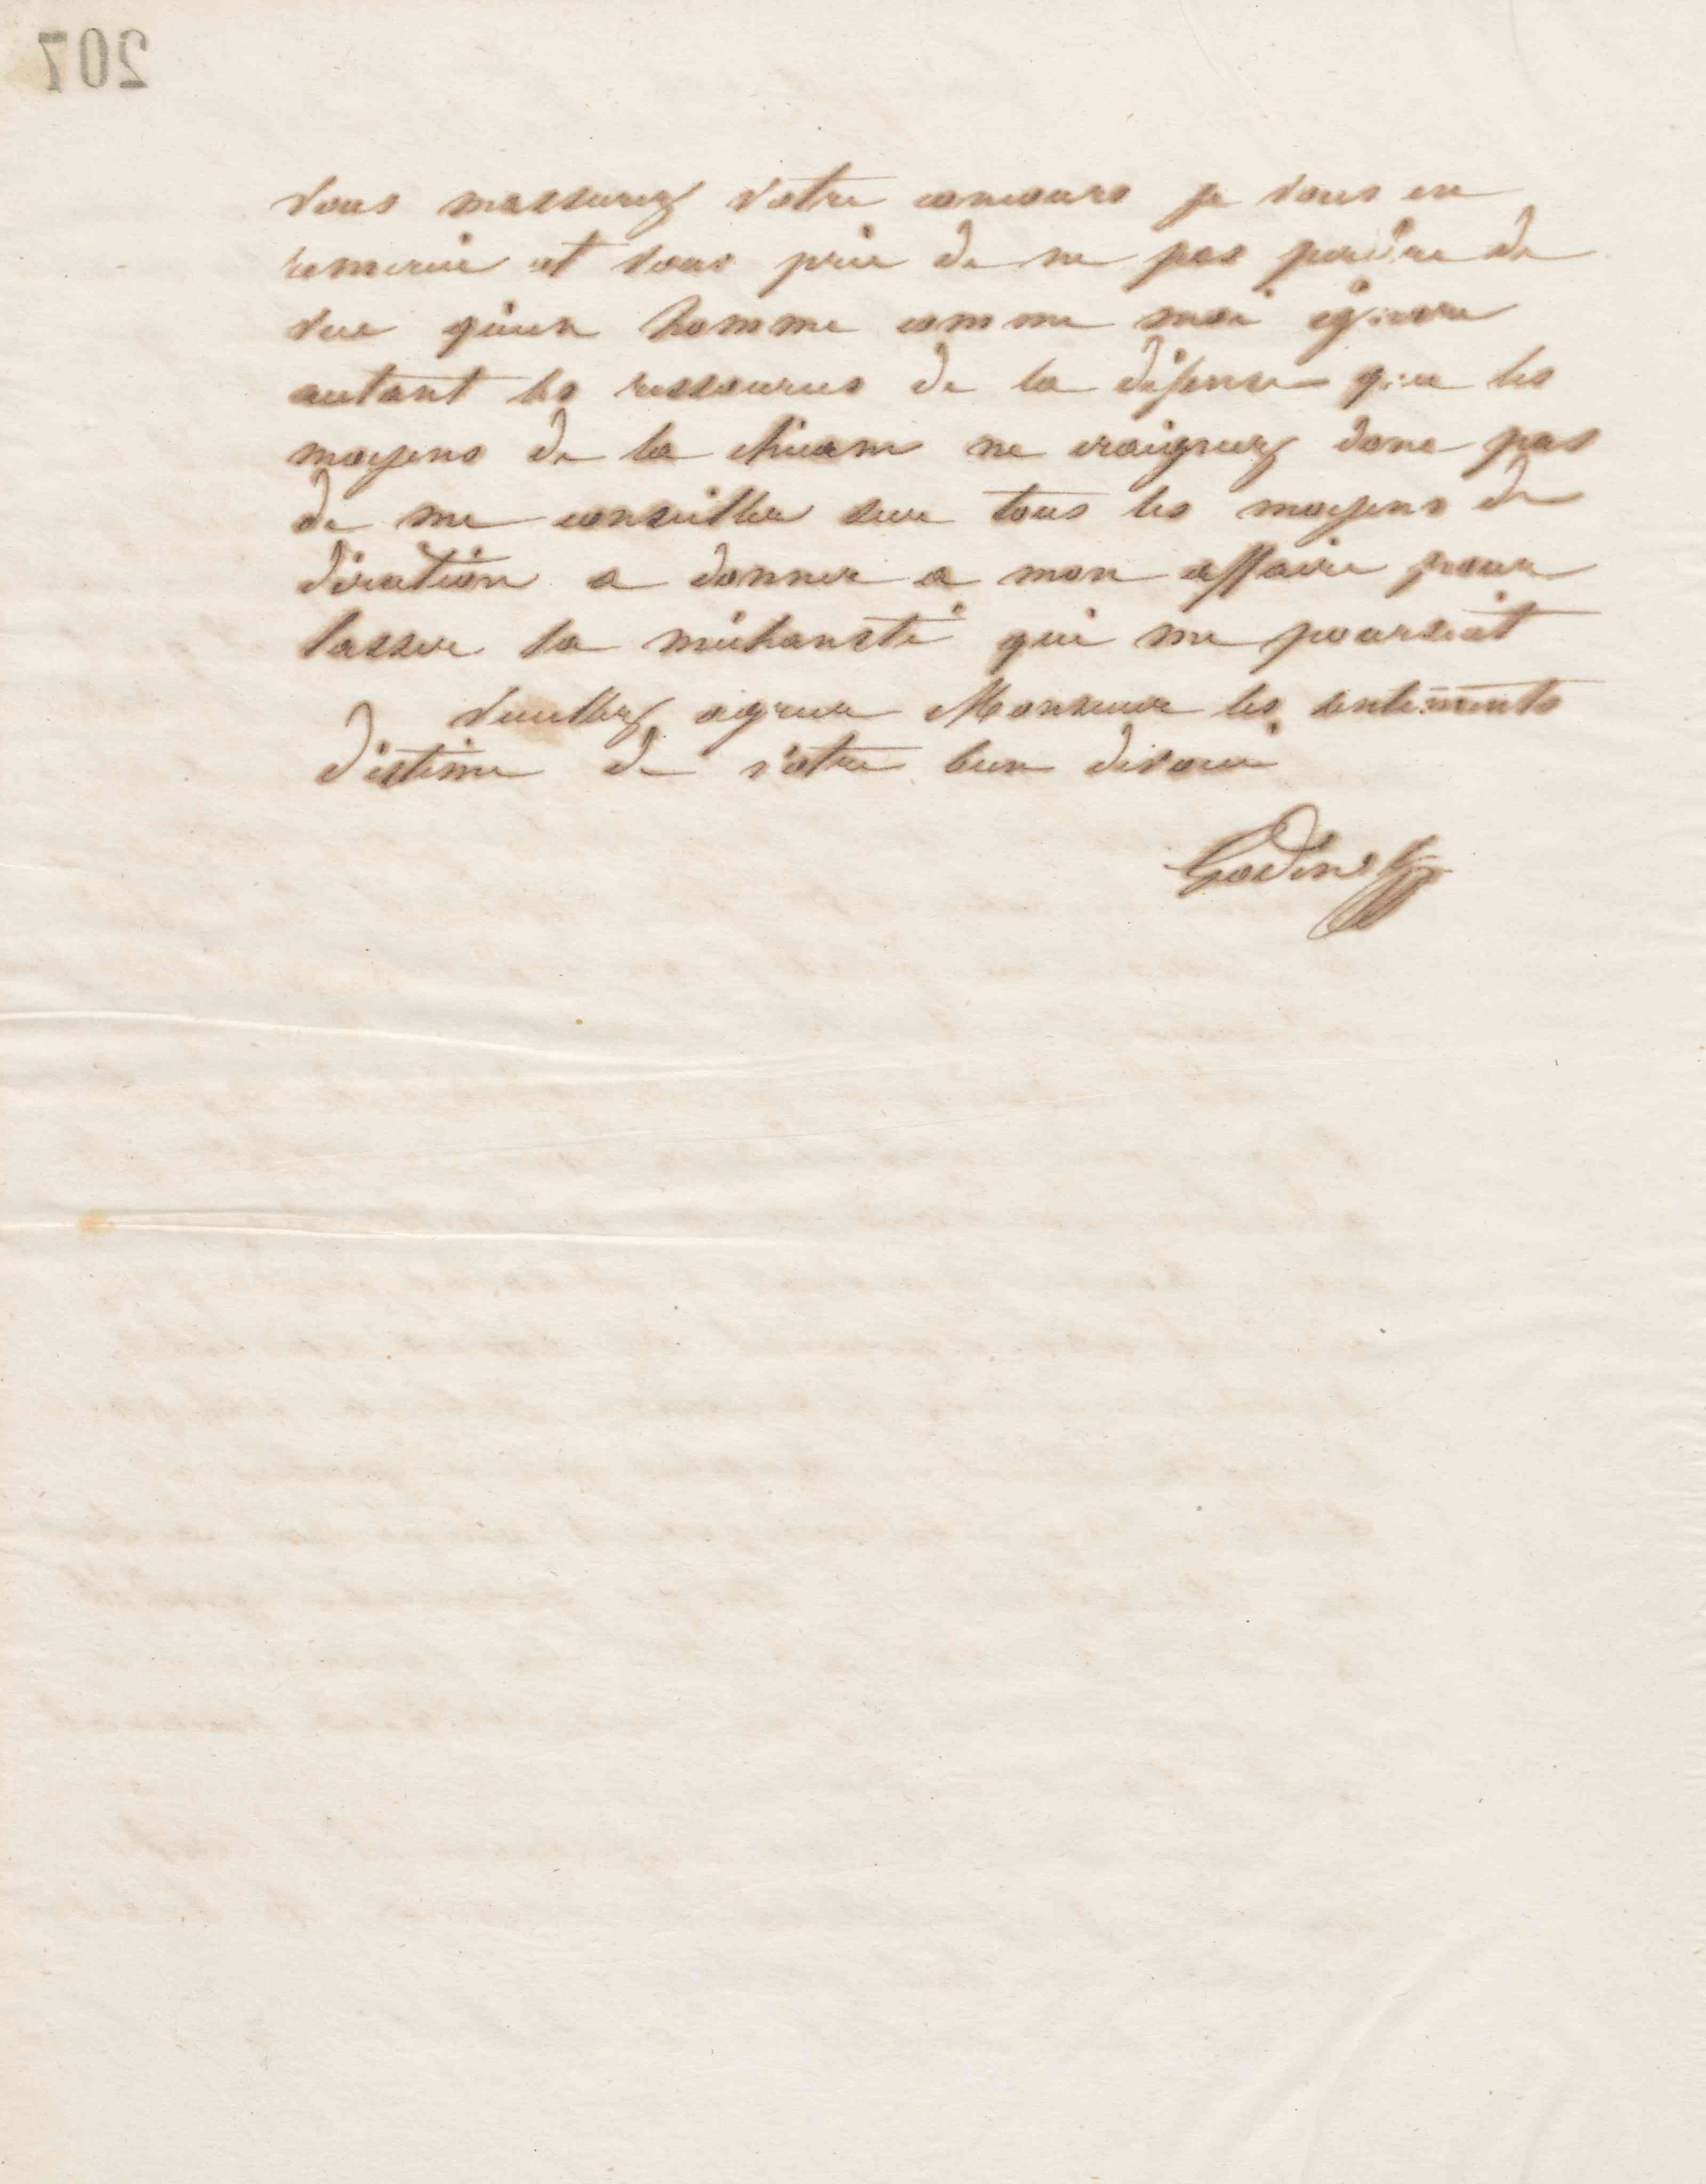 207
vous massurez votre concours je vous en
remercie et vous prie de ne pas perdre de
vue qu'un homme comme moi ignore
autant les ressources de la défense que les
moyens de la chicane ne craignez donc pas
de me conseiller sur tous les moyens de
diration a donner a mon affaire pour
lasser la méchansté qui me poursuit
Veuillez agreer Monsieur les sentiments
d'estime de votre bien dévoué
Godin